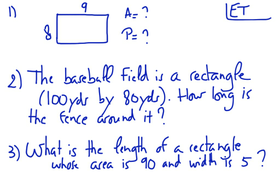 1) 9 A = ? ET
8 P = ?
2) The baseball field is a rectangle
(100yds by 80yds). How long is
the fence around it?
3) What is the length of a rectangle
whose area is 90 and width is 5?